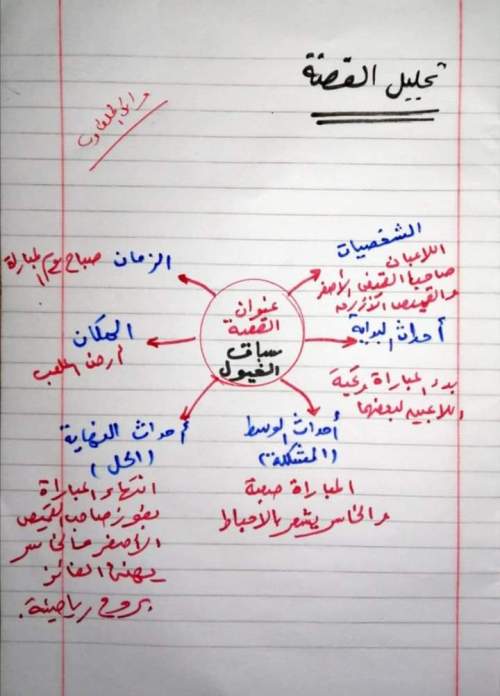 تحليل القصة
الشخصيات
اللاعبان
صاحبا القميص الأصفر
والقميص الأزرق
أحداث البداية
بدء المباراة وتحية
اللاعبين لبعضهما
أحداث الوسط
(المشكلة)
المباراة صعبة
والخاسر يشعر بالاحباط
أحداث النهاية
(الحل)
انتهاء المباراة
بفوز صاحب القميص
الأصفر والخاسر
يهنئ الفائز
بروح رياضية.
المكان
أرض الملعب
الزمان
صباح يوم المباراة
عنوان
القصة
سباق
الخيول